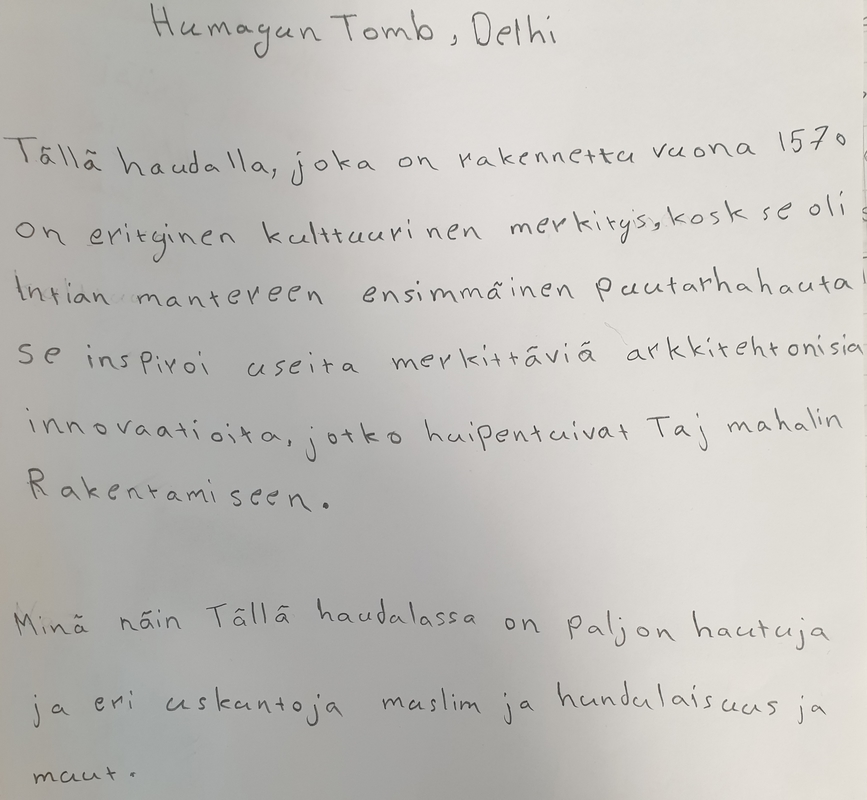 Humayun Tomb, Delhi
Tällä haudalla, joka on rakennettu vuona 1570
on erityinen kulttuurinen merkitys, kosk se oli
Intian mantereen ensimmäinen puutarhahauta
se inspiroi useita merkittäviä arkkitehtonisia
innovaatioita, jotko huipentuivat Taj mahalin
Rakentamiseen.
Minä näin Tällä haudalassa on paljon hautuja
ja eri uskontoja muslim ja hundulaisuus ja
muut.